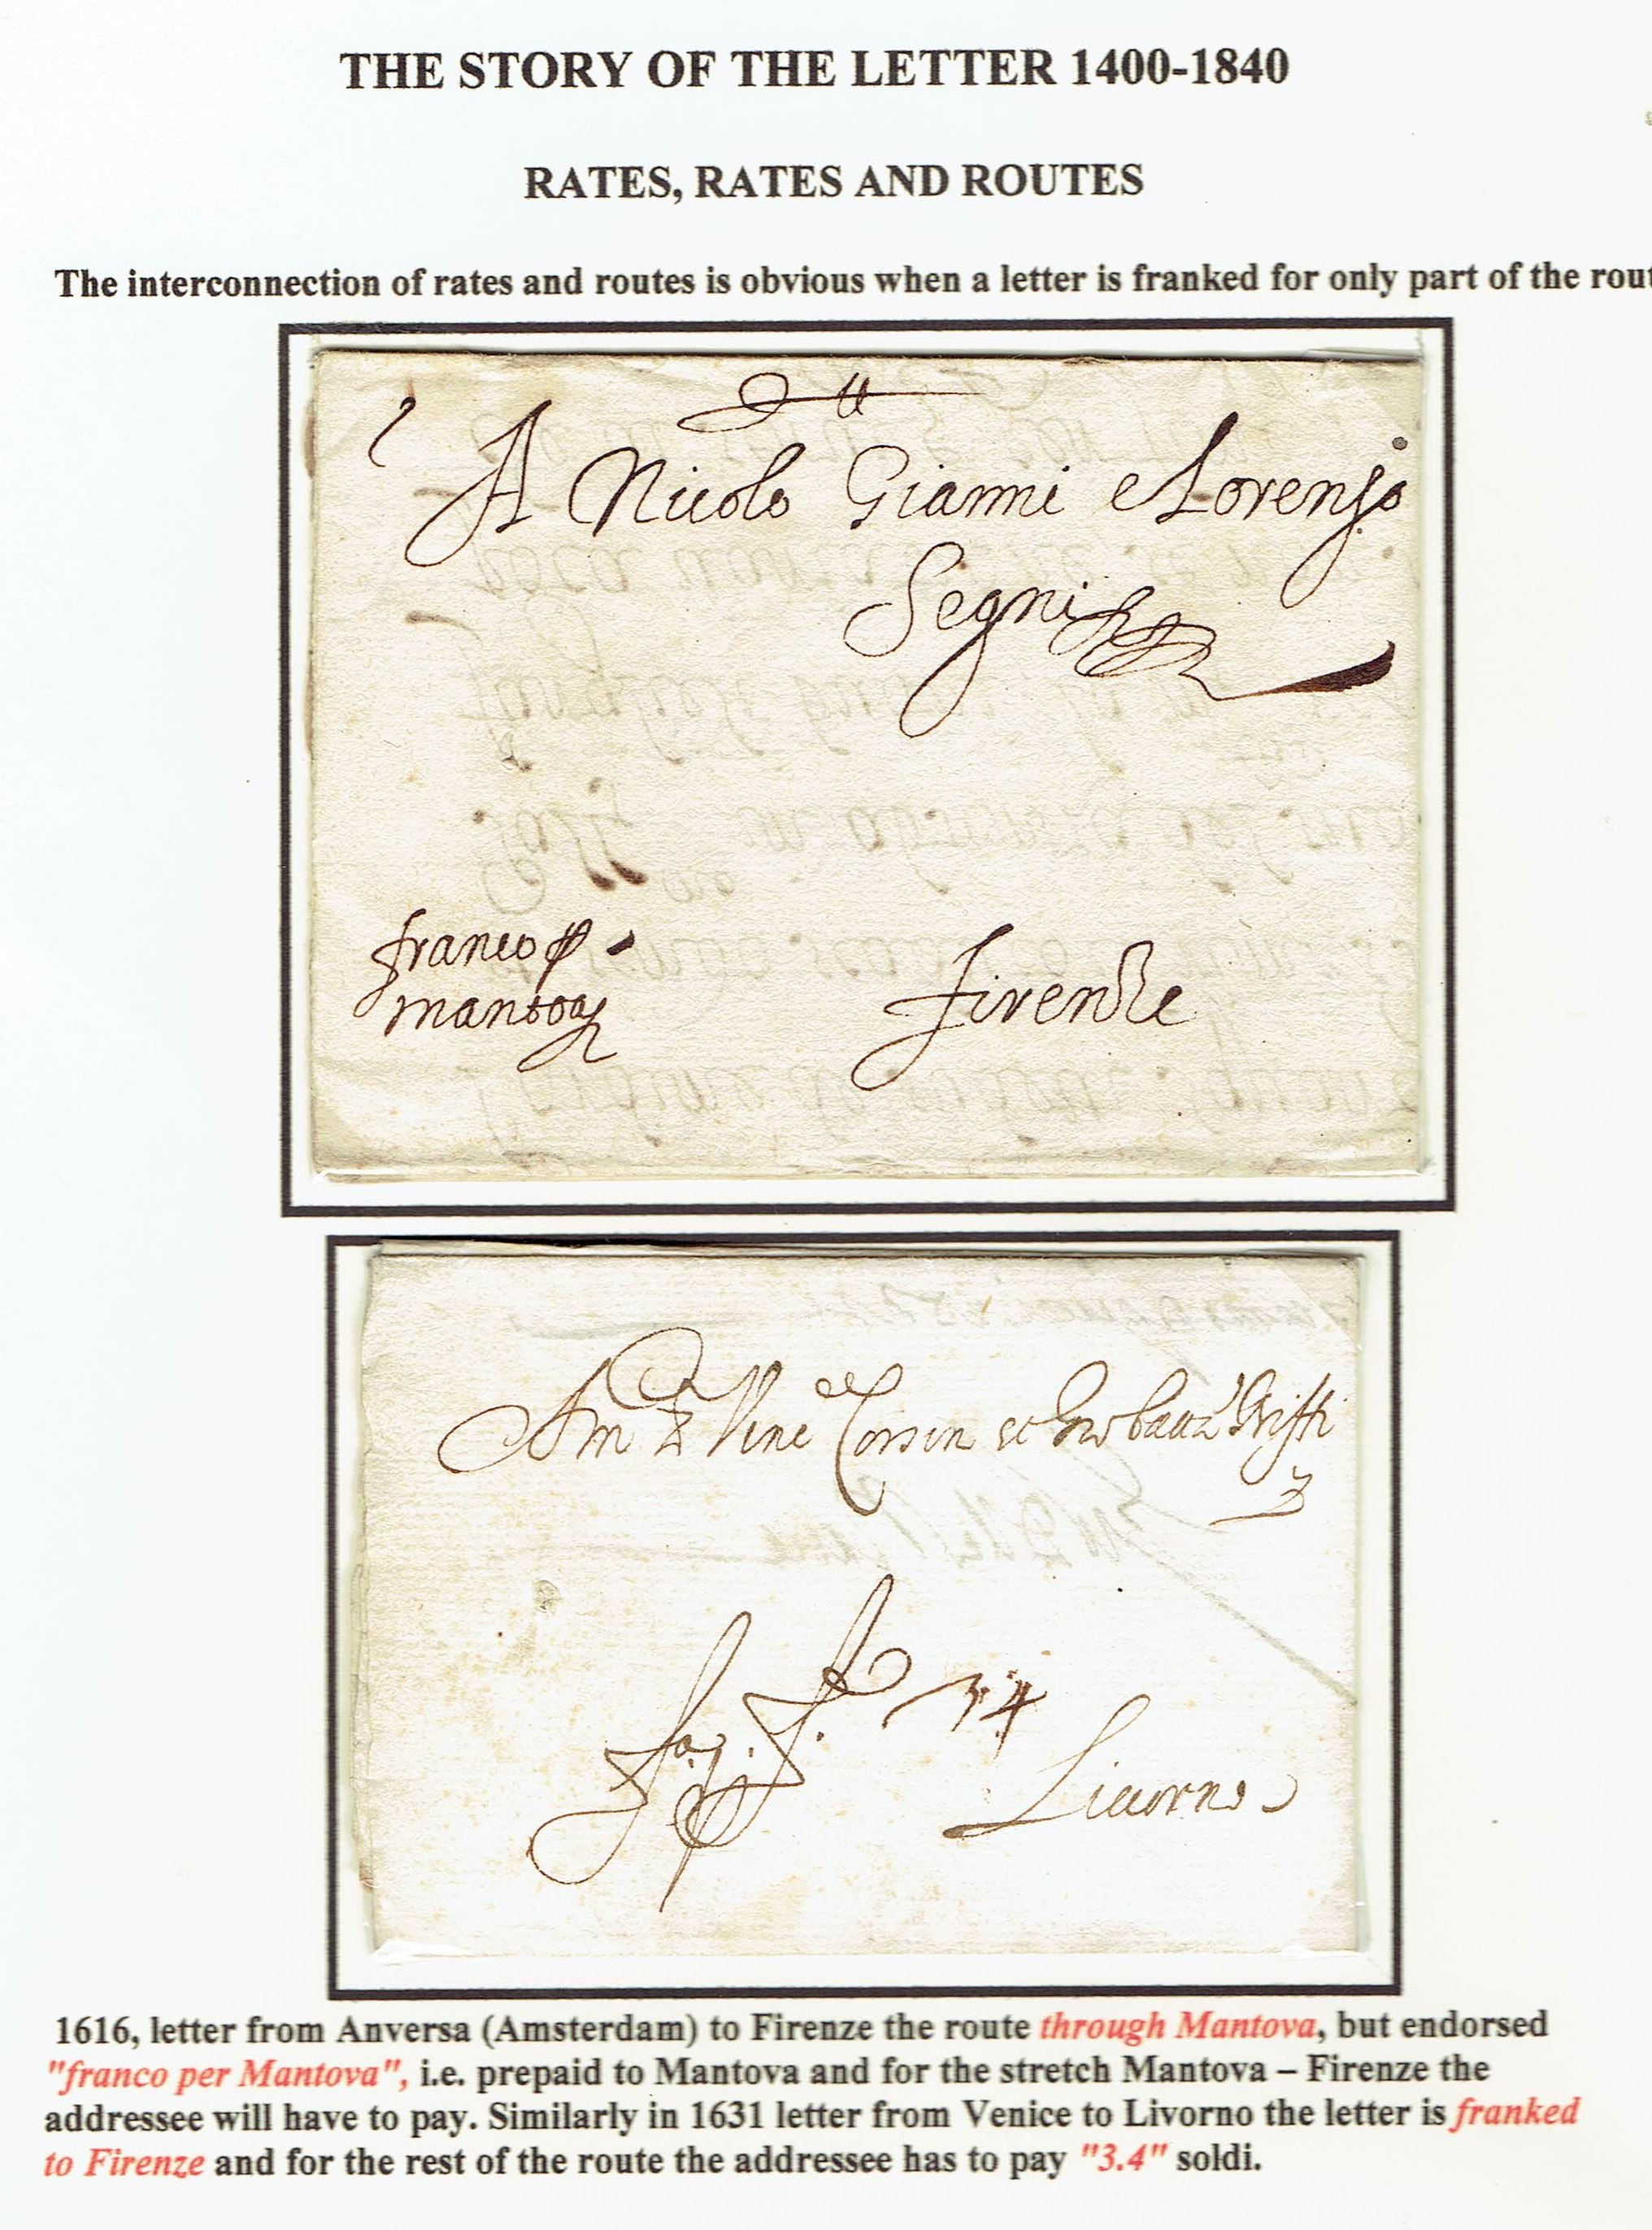 THE STORY OF THE LETTER 1400-1840
RATES, RATES AND ROUTES
The interconnection of rates and routes is obvious when a letter is franked for only part of the rout
A Nicolo Gianni e Lorenzo
Segni
franco p
mantoa
firenze
34
Liuorno
1616, letter from Anversa (Amsterdam) to Firenze the route through Mantova, but endorsed
"franco per Mantova", i.e. prepaid to Mantova and for the stretch Mantova – Firenze the
addressee will have to pay. Similarly in 1631 letter from Venice to Livorno the letter is franked
to Firenze and for the rest of the route the addressee has to pay "3.4" soldi.